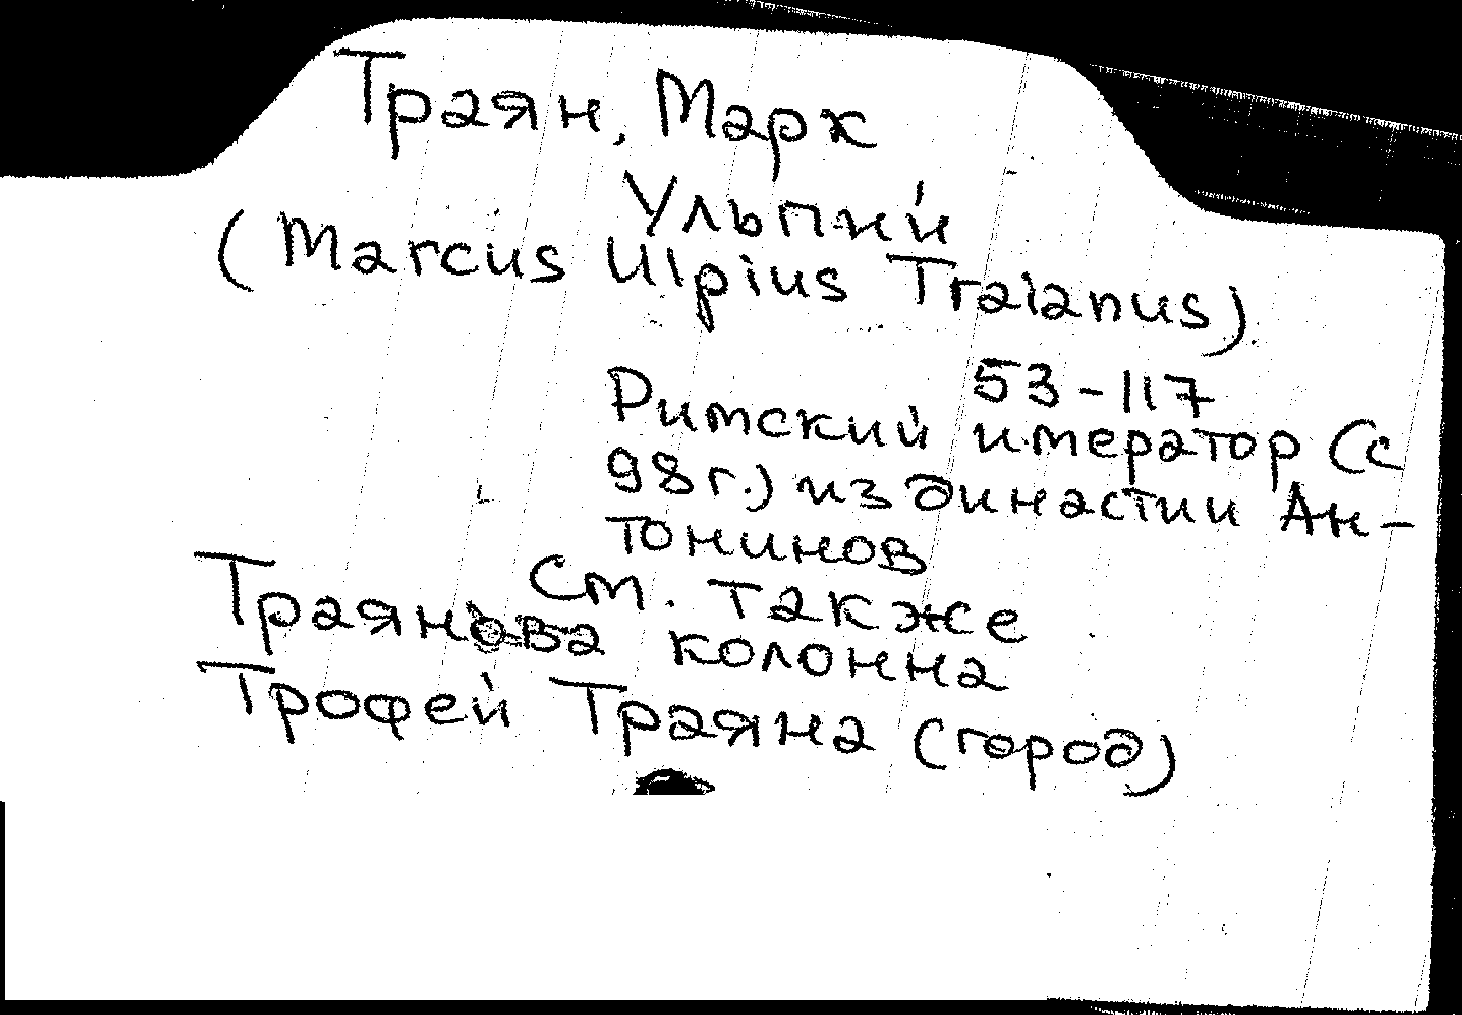 Траян, Марк
Ульпий
(Marcus Ulpius Traianus)
53-117
Римский император (с
98г.) из династии Ан-
тонинов
См. также
Траянова колонна
Трофей Траяна (город)